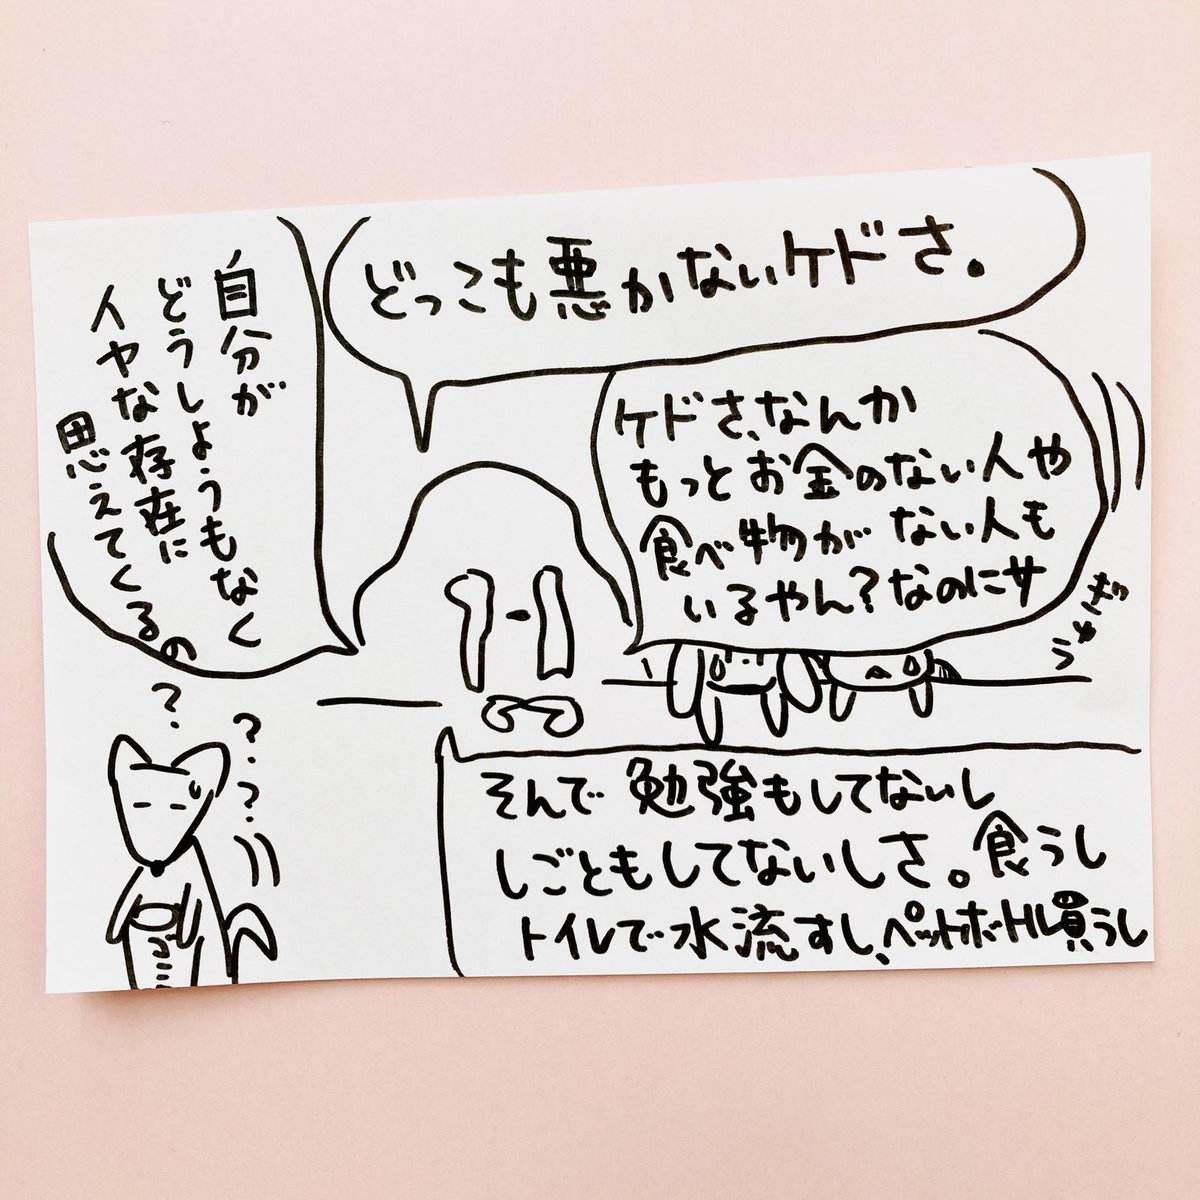 どっこも悪かないケドさ。
ケドさ、なんか
もっとお金のない人や
食べ物がない人も
いるやん?なのにサ
ぎゅう
そんで勉強もしてないし
しごともしてないしさ。食うし
トイレで水流すし、ペットボトル買うし
自分が
どうしようもなく
イヤな存在に
思えてくるの
?
?
?
?